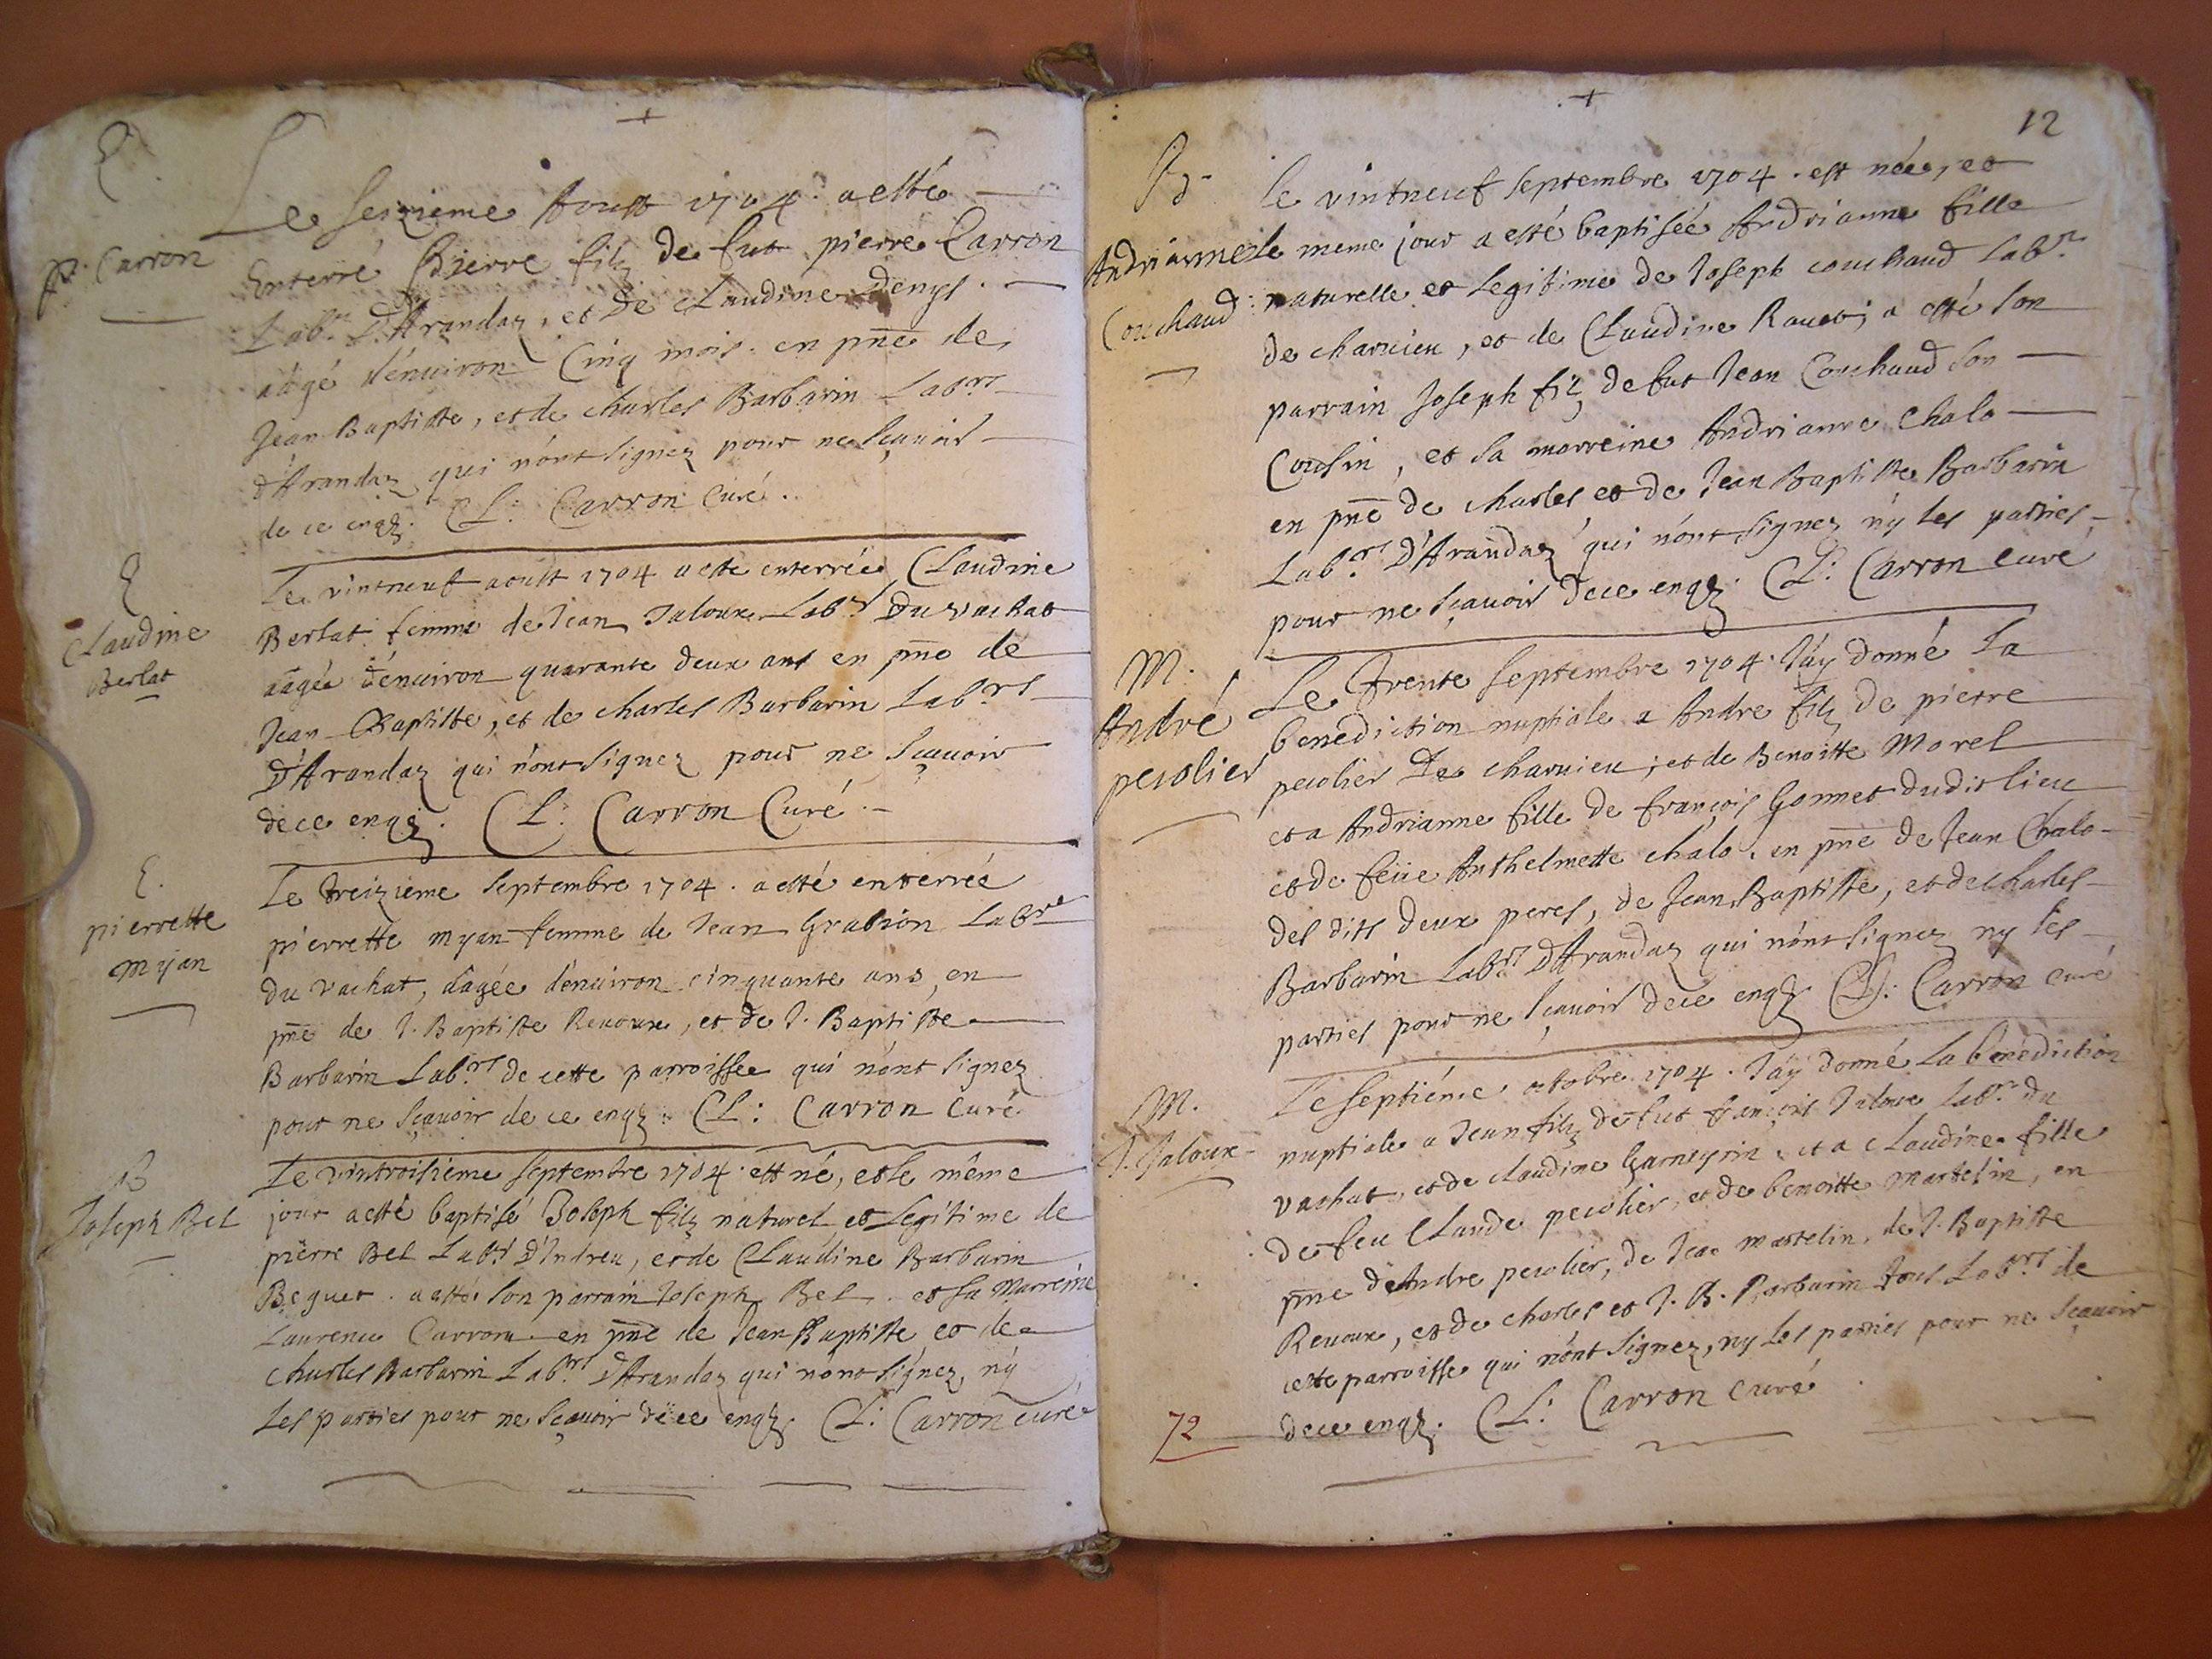 +
E.
P. Carron
Le seizieme Aoust 1704. a esté
Enterré Pierre filz de fut pierre Carron
Labr. D'Arandaz, et de Claudine Denys.
aâgé d'énuiron Cinq mois. en pñe de
Jean Baptiste, et de charles Barbarin Labrs
d'Arandaz qui n'ont signez pour ne sçauoir
de ce enqz. CL: Carron Curé.
E
Claudine
Berlat
Le vintneuf aoust 1704 a esté enterrée Claudine
Berlat femme de Jean Jaloux Labr Du vachat
aâgée d'énuiron quarante deux ans en pñe de
Jean Baptiste, et de charles Barbarin Labrs
D'Arandaz qui n'ont signez pour ne sçauoir
de ce enqz. CL: Carron Curé.
E.
pierrette
myan
Le treizieme septembre 1704. a esté enterrée
pierrette myan femme de Jean Grabion Labr
du vachat, âagée d'énuiron cinquante ans, en
pñe de J. Baptiste Reuoux, et de J. Baptiste
Barbarin Labrs de cette parroisse qui n'ont signez
pour ne sçauoir de ce enqz. CL: Carron Curé
B
Joseph Bel
Le vintroisieme septembre 1704. est né, et le même
jour a esté baptisé Joseph filz naturel et legitime de
pierre Bel Labr D'Indreu, et de Claudine Barbarin
Beguet. a esté son parrain Joseph Bel. et sa Marreine
Laurence Carron en pñe de Jean Baptiste et de
charles Barbarin Labrs D'Arandaz qui n'ont signez, n'y
Les parties pour ne sçauoir de ce enqz CL: Carron curé
+
12
B.
Andrianne
Couchaud
le vintneuf septembre 1704. est née, et
le meme jour a esté baptisée Andrianne fille
naturelle et Legitime de Joseph couchaud Labr.
de charuieu, et de Claudine Rauet; a esté son
parrain Joseph filz de fut Jean Couchaud son
Cousin, et sa marreine Andrianne Chalo
en pñe de charles et de Jean Baptiste Barbarin
Labrs D'Arandaz qui n'ont signez n'y les parties
pour ne sçauoir de ce enqz. CL: Carron curé
M.
André
peiolier
Le Trente septembre 1704. J'ay donné La
benediction nuptiale a Andre filz de pierre
peiolier De charuieu; et de Benoitte Morel
et a Andrianne fille de françois Gonnet dudit lieu
et de feüe Anthelmette chalo. en pñe de Jean Chalo
des dits deux peres, de Jean Baptiste, et de charles
Barbarin Labrs D'Arandaz qui n'ont signez ny les
parties pour ne sçauoir de ce enqz CL: Carron curé
M.
J. Jaloux
Le septiéme octobre 1704. J'ay donné La benediction
nuptiale a Jean filz de fut françois Jaloux Labr. du
vachat, et de claudine Garneyrin, et a claudine fille
de feu Claude peiolier, et de benoitte martelin, en
pñe de Andre peiolier, de Jean martelin, de J. Baptiste
Reuoux, et de charles et J. B. Barbarin tous Labrs de
cette parroisse qui n'ont signez, ny les parties pour ne sçauoir
de ce enqz. CL: Carron Curé
72